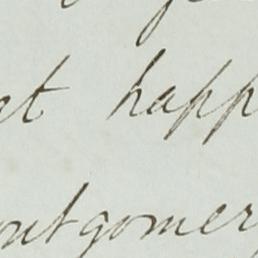 at happ
ontgomery